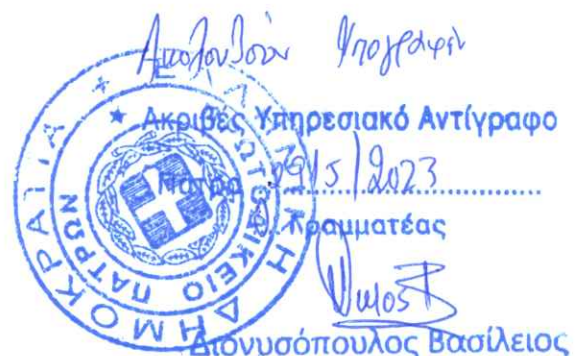 Ακολουθούν Υπογραφές
Ακριβές Υπηρεσιακό Αντίγραφο
Πάτρα 29/5/2023
Ο Γραμματέας
Διονυσόπουλος Βασίλειος
ΕΛΛΗΝΙΚΗ ΔΗΜΟΚΡΑΤΙΑ
ΠΡΩΤΟΔΙΚΕΙΟ ΠΑΤΡΩΝ